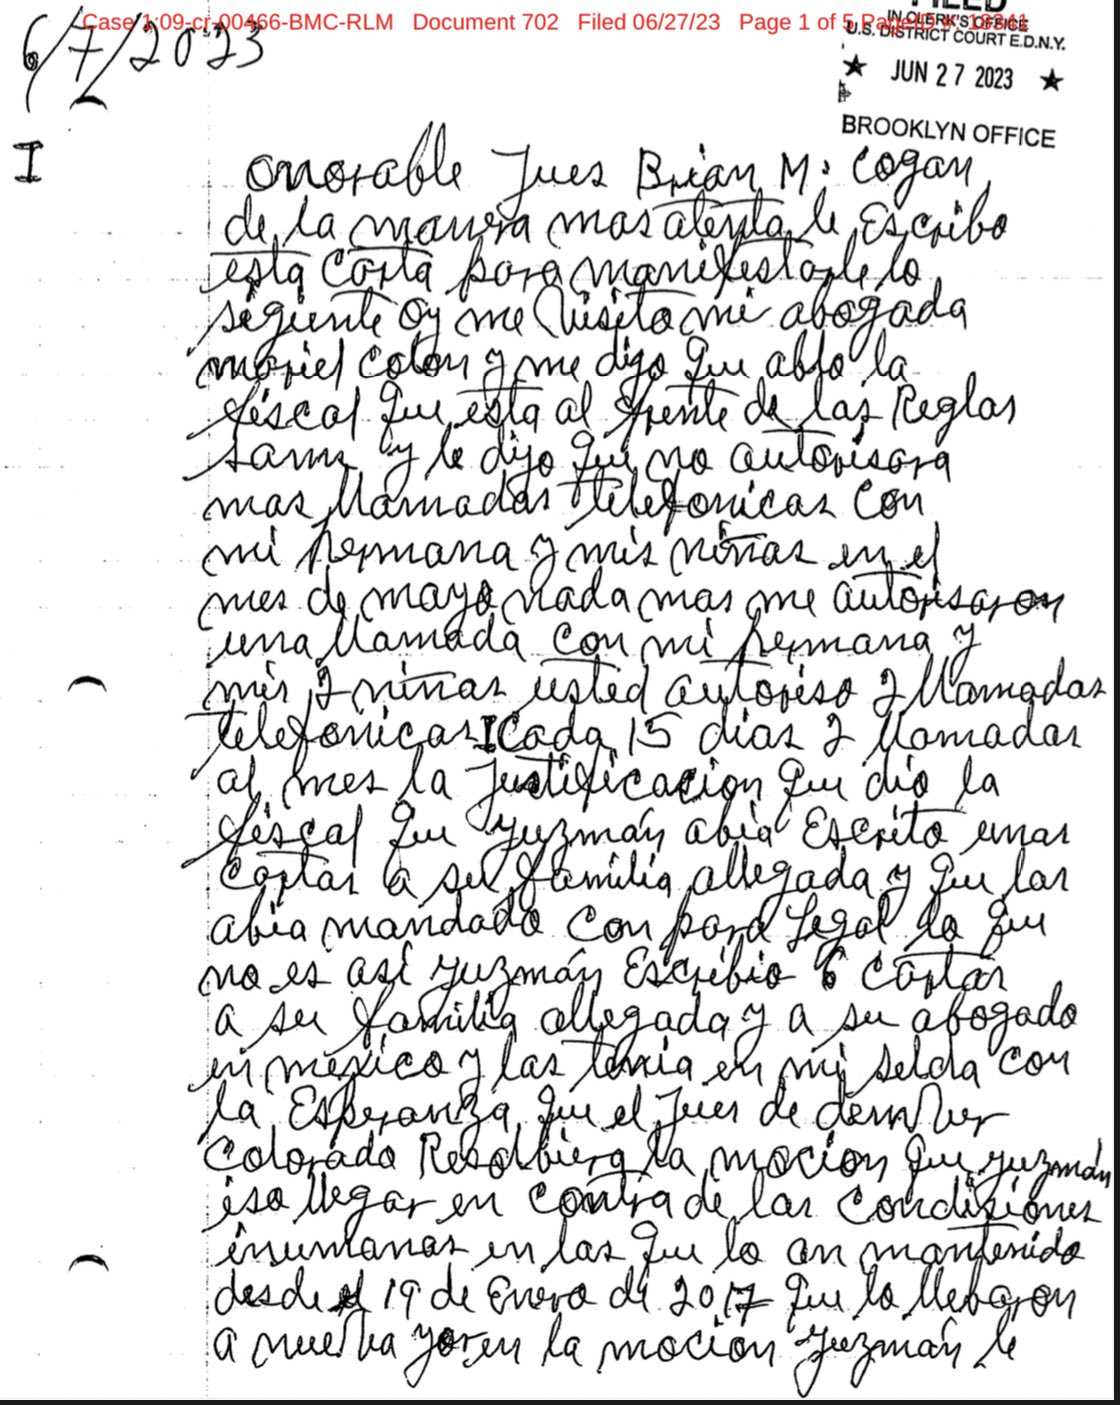 FILED
IN CLERK'S OFFICE
Case 1:09-cr-00466-BMC-RLM Document 702 Filed 06/27/23 Page 1 of 5
U.S. DISTRICT COURT E.D.N.Y.
6/7/2023
★ JUN 27 2023 ★
BROOKLYN OFFICE
I
onorable Jues Brian M. Cogan
de la manera mas atenta le Escribo
esta Carta para manifestarle lo
sigiente oy me Visito mi abogada
mariel Colon y me dijo que ablo la
fiscal que esta al frente de las Reglas
sams y le dijo que no autorisara
mas llamadas telefonicas Con
mi hermana y mis niñas en el
mes de mayo nada mas me autorisaron
una llamada con mi hermana y
mis 2 niñas usted autoriso 2 llamadas
telefonicas I Cada 15 dias 2 llamadas
al mes la justificacion que dio la
fiscal que yuzmán abia Escrito unas
Cartas a su familia allegada y que las
abia mandado con para Legal lo que
no es así yuzmán Escribio 6 Cartas
a su familia allegada y a su abogado
en mexico y las tenia en mi selda con
la Esperanza que el Jues de demVer
Colorado Resolbiera la mocion que yuzmán
iso llegar en contra de las Condisiones
inumanas en las que lo an mantenido
desde el 19 de Enero de 2017 que lo llebaron
a nueva yor en la mocion yuzmán le